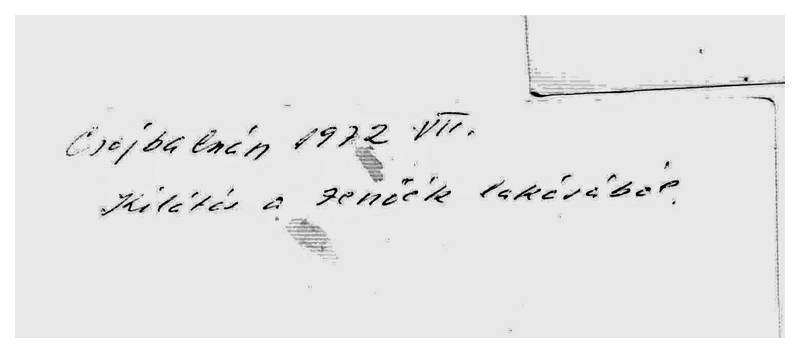 Csojbalzán 1972 VII.
Kilátás a Jenőék lakásából.